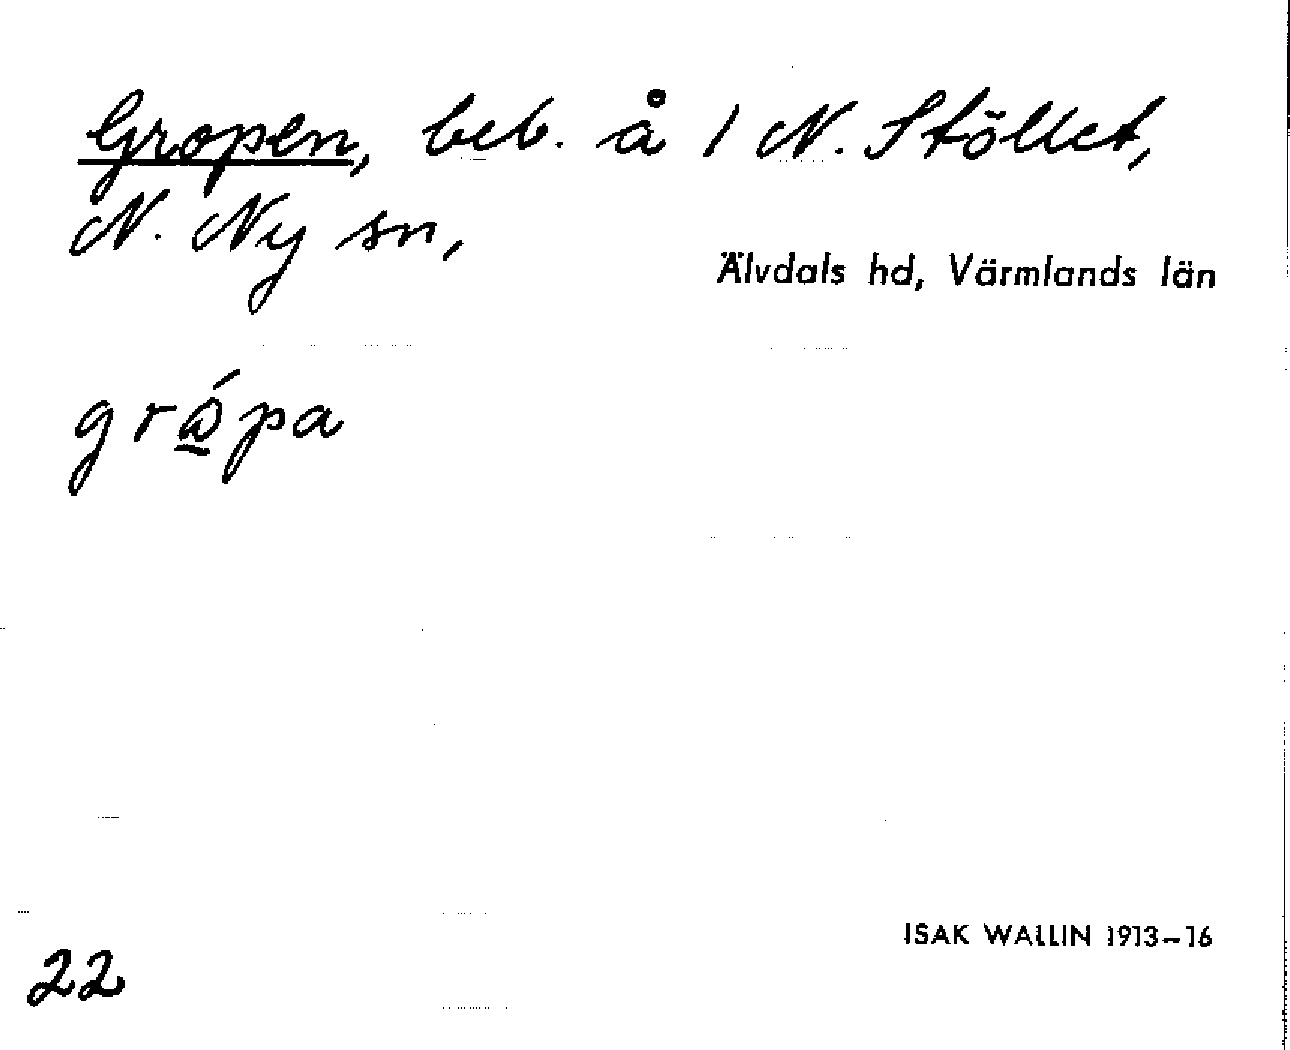 Gropen, beb. å 1 N. Stöllet,
N. Ny sn,
Älvdals hd, Värmlands län
ISAK WALLIN 1913–16
22